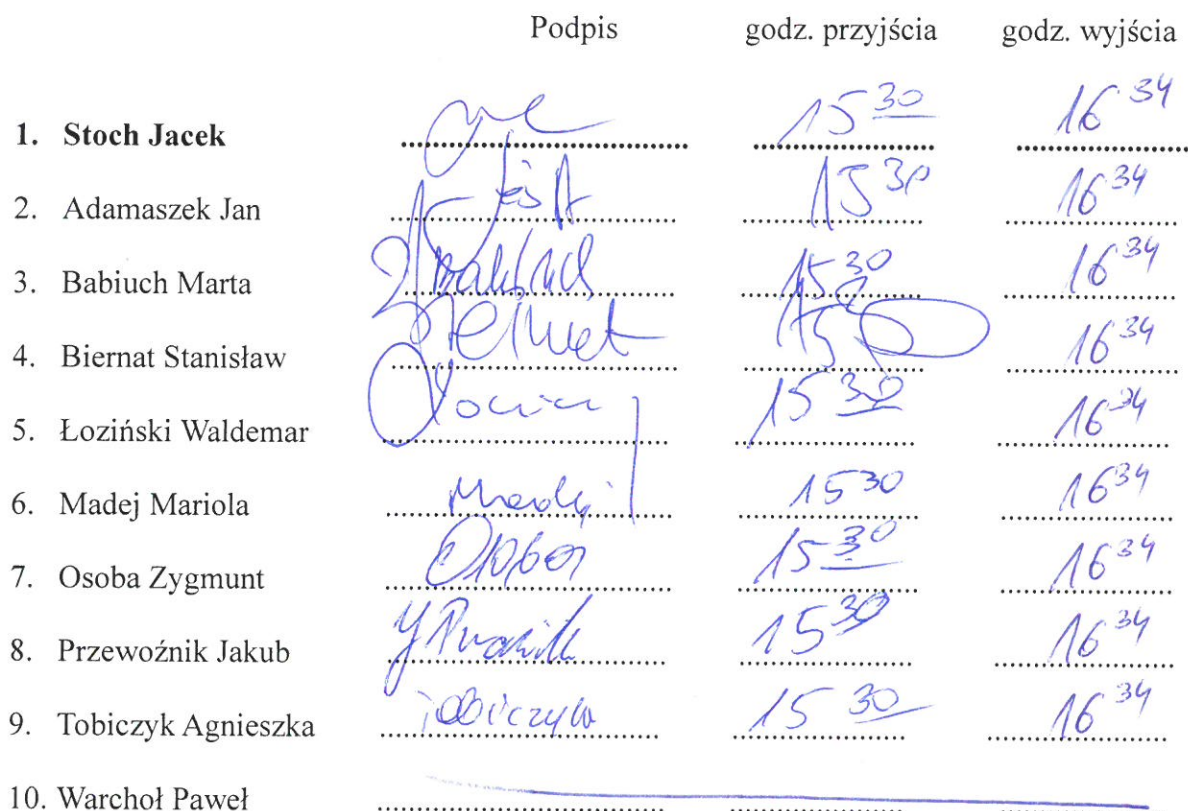 Podpis godz. przyjścia godz. wyjścia
1. Stoch Jacek 15 30 16 34
2. Adamaszek Jan 15 30 16 34
3. Babiuch Marta 15 30 16 34
4. Biernat Stanisław 16 34
5. Łoziński Waldemar 15 30 16 34
6. Madej Mariola Madej 15 30 16 34
7. Osoba Zygmunt Osoba 15 30 16 34
8. Przewoźnik Jakub 15 30 16 34
9. Tobiczyk Agnieszka Tobiczyk 15 30 16 34
10. Warchoł Paweł